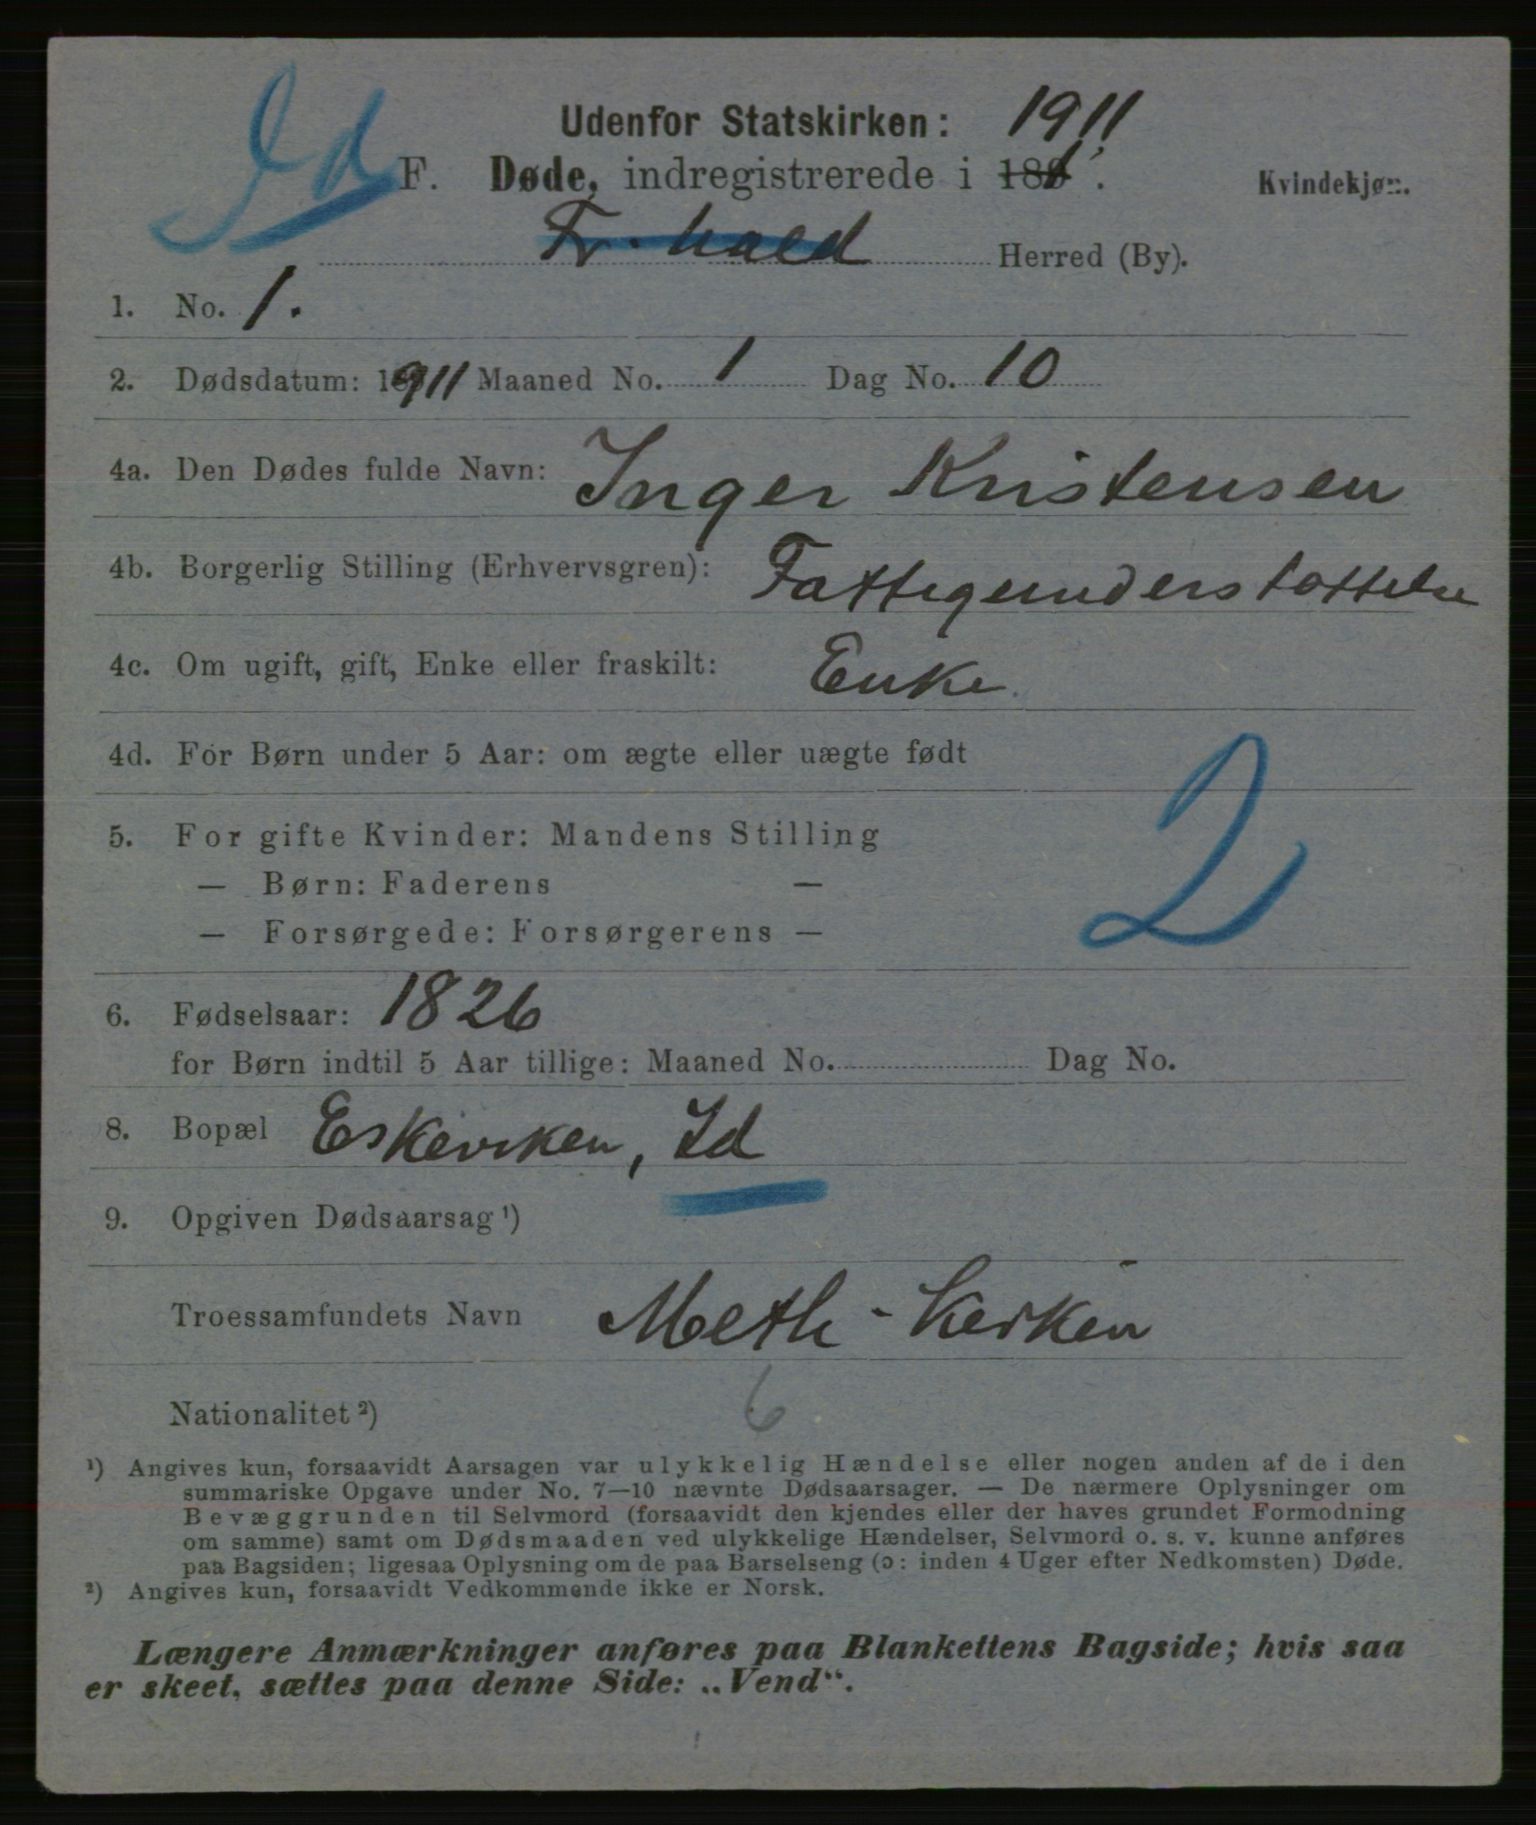 Id
Udenfor Statskirken: 1911
F. Døde, indregistrerede i 18 . Kvindekjøn.
Fr.hald Herred (By).
1. No. 1.
2. Dødsdatum: 1911 Maaned No. 1 Dag No. 10
4a. Den Dødes fulde Navn: Inger Kristensen
4b. Borgerlig Stilling (Erhvervsgren): Fattigunderstøttelse
4c. Om ugift, gift, Enke eller fraskilt: Enke
4d. For Børn under 5 Aar: om ægte eller uægte født
5. For gifte Kvinder: Mandens Stilling
— Børn: Faderens —
— Forsørgede: Forsørgerens —
2
6. Fødselsaar: 1826
for Børn indtil 5 Aar tillige: Maaned No. Dag No.
8. Bopæl Eskeviken, Id
9. Opgiven Dødsaarsag ¹)
Troessamfundets Navn Meth-kirken
6
Nationalitet ²)
¹) Angives kun, forsaavidt Aarsagen var ulykkelig Hændelse eller nogen anden af de i den
summariske Opgave under No. 7—10 nævnte Dødsaarsager. — De nærmere Oplysninger om
Bevæggrunden til Selvmord (forsaavidt den kjendes eller der haves grundet Formodning
om samme) samt om Dødsmaaden ved ulykkelige Hændelser, Selvmord o. s. v. kunne anføres
paa Bagsiden; ligesaa Oplysning om de paa Barselseng (ɔ: inden 4 Uger efter Nedkomsten) Døde.
²) Angives kun, forsaavidt Vedkommende ikke er Norsk.
Længere Anmærkninger anføres paa Blankettens Bagside; hvis saa
er skeet, sættes paa denne Side: „Vend“.